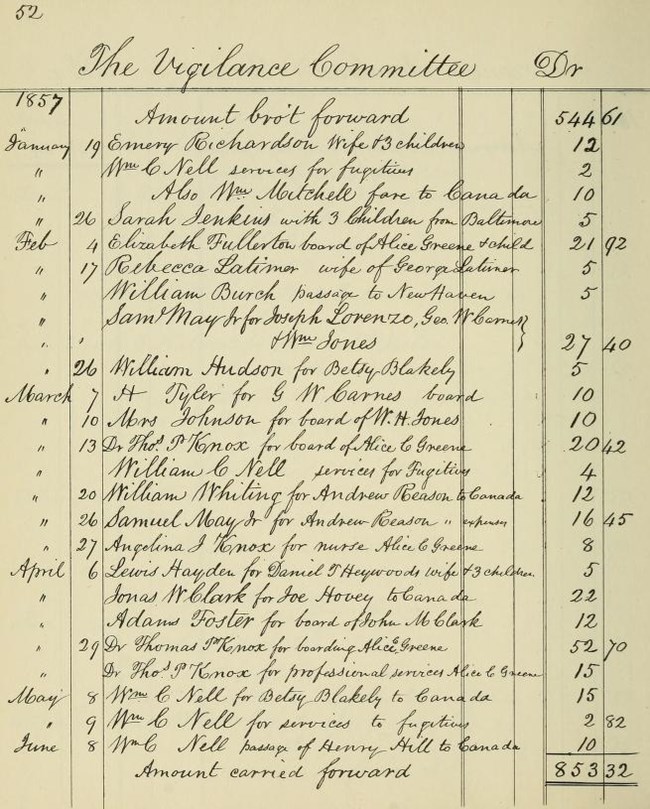 52
The Vigilance Committee Dr
1857
Amount bro't forward 544 61
January 19 Emery Richardson Wife & 3 children 12
" Wm C Nell services for fugitives 2
" Also Wm Mitchell fare to Canada 10
" 26 Sarah Jenkins with 3 Children from Baltimore 5
Feb 4 Elizabeth Fullerton board of Alice Greene & child 21 92
" 17 Rebecca Latimer wife of George Latimer 5
" William Burch passage to New Haven 5
" Saml May Jr for Joseph Lorenzo, Geo. W Carnes }
" " & Wm Jones 27 40
" 26 William Hudson for Betsy Blakely 5
March 7 H Tyler for G W Carnes board 10
" 10 Mrs Johnson for board of W. H. Jones 10
" 13 Dr Thos. P Knox for board of Alice C Greene 20 42
" William C Nell services for Fugitives 4
" 20 William Whiting for Andrew Reason to Canada 12
" 26 Samuel May Jr for Andrew Reason " expenses 16 45
" 27 Angelina J Knox for nurse Alice C Greene 8
April 6 Lewis Hayden for Daniel T Heywoods wife & 3 children 5
" Jonas W Clark for Joe Hovey to Canada 22
" Adams Foster for board of John M Clark 12
" 29 Dr Thomas P Knox for boarding Alice C Greene 52 70
" Dr Thos. P Knox for professional services Alice C Greene 15
May 8 Wm C Nell for Betsy Blakely to Canada 15
" 9 Wm C Nell for services to fugitives 2 82
June 8 Wm C Nell passage of Henry Hill to Canada 10
Amount carried forward 853 32